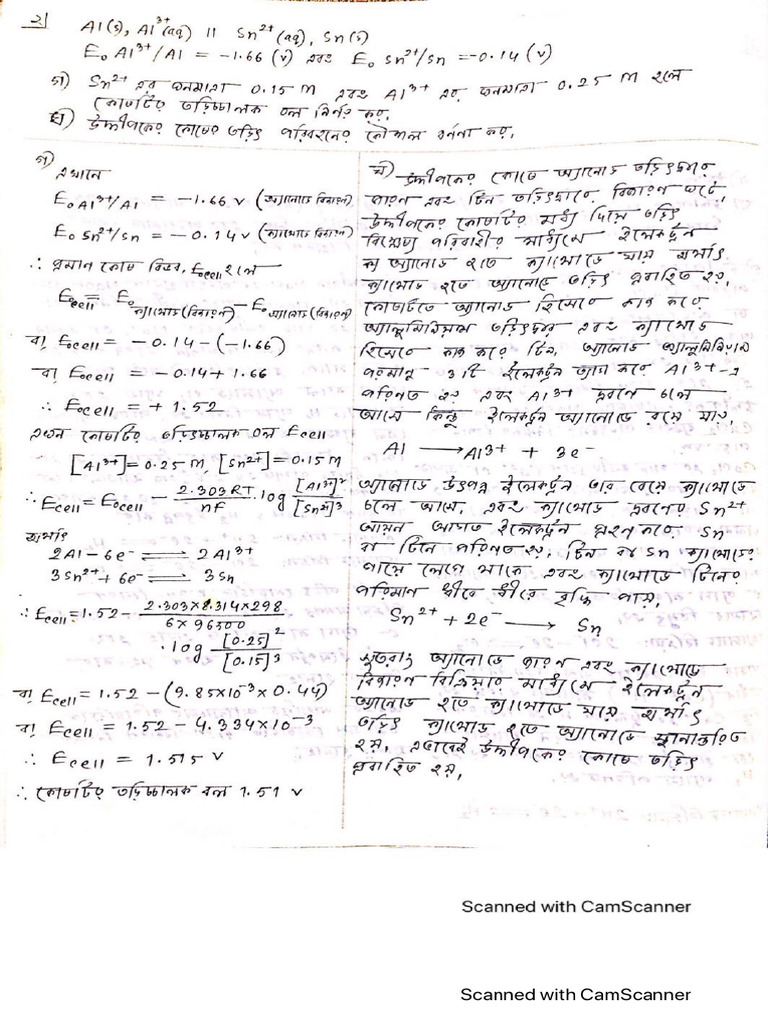 ২।
Al(s), Al³⁺(aq) || Sn²⁺(aq), Sn(s)
E₀ Al³⁺/Al = -1.66 (v) এবং E₀ Sn²⁺/Sn = -0.14 (v)
গ) Sn²⁺ এর ঘনমাত্রা 0.15 M এবং Al³⁺ এর ঘনমাত্রা 0.25 M হলে
কোষটির তড়িচ্চালক বল নির্ণয় কর,
ঘ) উদ্দীপকের কোষের তড়িৎ পরিবহনের কৌশল বর্ননা কর,
গ)
এখানে
E₀ Al³⁺/Al = -1.66 v (অ্যানোডে বিজারণ)
E₀ Sn²⁺/Sn = -0.14 v (ক্যাথোডে বিজারণ)
∴ প্রমান কোষ বিভব, E₀cell হলে
E₀cell = E₀ ক্যাথোড (বিজারণ) - E₀ অ্যানোড (বিজারণ)
বা E₀cell = -0.14-(-1.66)
বা E₀cell = -0.14+1.66
∴ E₀cell = +1.52
এখন কোষটির তড়িচ্চালক বল Ecell
[Al³⁺]=0.25 M, [Sn²⁺]=0.15 M
∴ Ecell = E₀cell - 2.303 RT/nf . log [Al³⁺]²/[Sn²⁺]³
অর্থাৎ
2Al-6e⁻ ⇌ 2Al³⁺
3Sn²⁺+6e⁻ ⇌ 3Sn
∴ Ecell = 1.52- 2.303×8.314×298/6×96500
. log [0.25]²/[0.15]³
বা Ecell = 1.52-(9.85×10⁻³×0.44)
বা Ecell = 1.52-4.334×10⁻³
∴ Ecell = 1.515 v
∴ কোষটির তড়িচ্চালক বল 1.51 v
ঘ) উদ্দীপকের কোষে অ্যানোড তড়িৎদ্বারে
জারণ এবং টিন তড়িৎদ্বারে বিজারণ ঘটে,
উদ্দীপকের কোষটির মধ্য দিয়ে তড়িৎ
বিশ্লেষ্য পরিবাহীর মাধ্যমে ইলেকট্রন
অ্যানোড হতে ক্যাথোডে যায় অর্থাৎ
ক্যাথোড হতে অ্যানোডে তড়িৎ প্রবাহিত হয়,
কোষটিতে অ্যানোড হিসেবে কাজ করে
অ্যালুমিনিয়াম তড়িৎদ্বার এবং ক্যাথোড
হিসেবে কাজ করে টিন, অ্যানোডে অ্যালুমিনিয়াম
পরমানু 3টি ইলেকট্রন ত্যাগ করে Al³⁺-এ
পরিণত হয় এবং Al³⁺ দ্রবণে চলে
আসে কিন্তু ইলেকট্রন অ্যানোডে রয়ে যায়,
Al ⟶ Al³⁺ + 3e⁻
অ্যানোডে উৎপন্ন ইলেকট্রন তার বেয়ে ক্যাথোডে
চলে আসে, এবং ক্যাথোডে দ্রবণের Sn²⁺
আয়ন আগত ইলেকট্রন গ্রহণ করে Sn
বা টিনে পরিণত হয়, টিন বা Sn ক্যাথোডের
গায়ে লেগে থাকে এবং ক্যাথোডে টিনের
পরিমান ধীরে ধীরে বৃদ্ধি পায়,
Sn²⁺ + 2e⁻ ⟶ Sn
সুতরাং অ্যানোডে জারণ এবং ক্যাথোডে
বিজারণ বিক্রিয়ার মাধ্যমে ইলেকট্রন
অ্যানোড হতে ক্যাথোডে যায় অর্থাৎ
তড়িৎ ক্যাথোড হতে অ্যানোডে স্থানান্তরিত
হয়, এভাবেই উদ্দীপকের কোষে তড়িৎ
প্রবাহিত হয়,
Scanned with CamScanner
Scanned with CamScanner